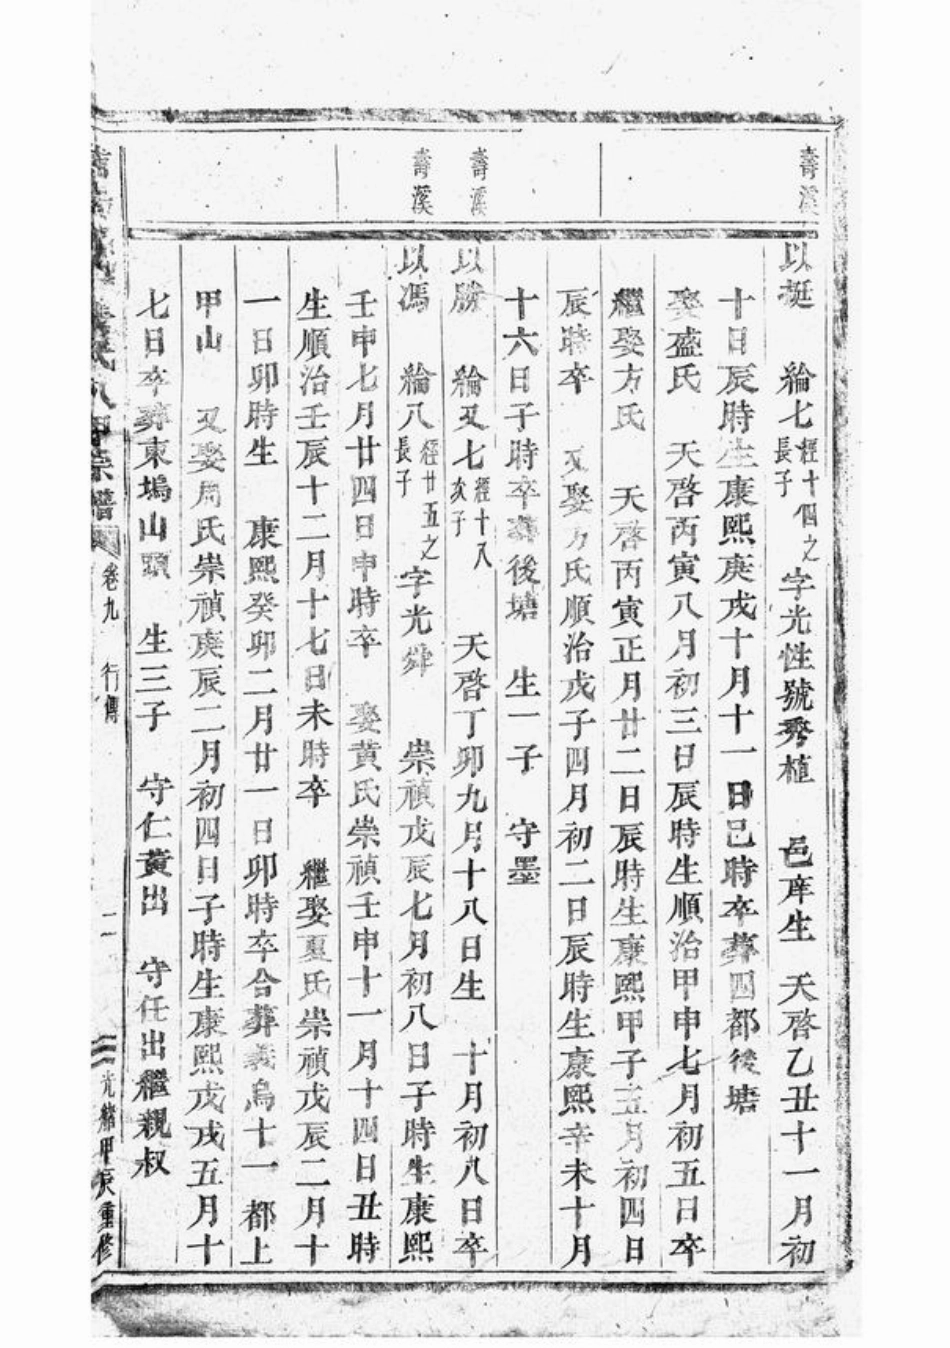 壽溪
壽溪
壽溪
以挺 綸七經十個之長子 字光性號秀植 邑庠生 天啓乙丑十一月初
十日辰時生康熙庚戌十月十一日巳時卒葬四都後塘
娶盛氏 天啓丙寅八月初三日辰時生順治甲申七月初五日卒
繼娶方氏 天啓丙寅正月廿二日辰時生康熙甲子五月初四日
辰時卒 又娶方氏順治戊子四月初二日辰時生康熙辛未十月
十六日子時卒葬後塘 生一子 守墨
以勝 綸又七經十八次子 天啓丁卯九月十八日生 十月初八日卒
以馮 綸八經廿五之長子 字光舜 崇禎戊辰七月初八日子時生康熙
壬申七月廿四日申時卒 娶黃氏崇禎壬申十一月十四日丑時
生順治壬辰十二月十七日未時卒 繼娶夏氏崇禎戊辰二月十
一日卯時生 康熙癸卯二月廿一日卯時卒合葬義烏十一都上
甲山 又娶周氏崇禎庚辰二月初四日子時生康熙戊戌五月十
七日卒葬東塢山頭 生三子 守仁黃出 守任出繼親叔
氏八甲宗譜 卷九 行傳 二 光緒甲辰重修